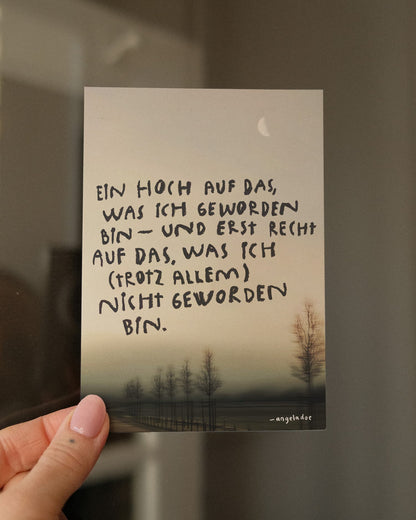 EIN HOCH AUF DAS,
WAS ICH GEWORDEN
BIN – UND ERST RECHT
AUF DAS, WAS ICH
(TROTZ ALLEM)
NICHT GEWORDEN
BIN.
–angeladoe